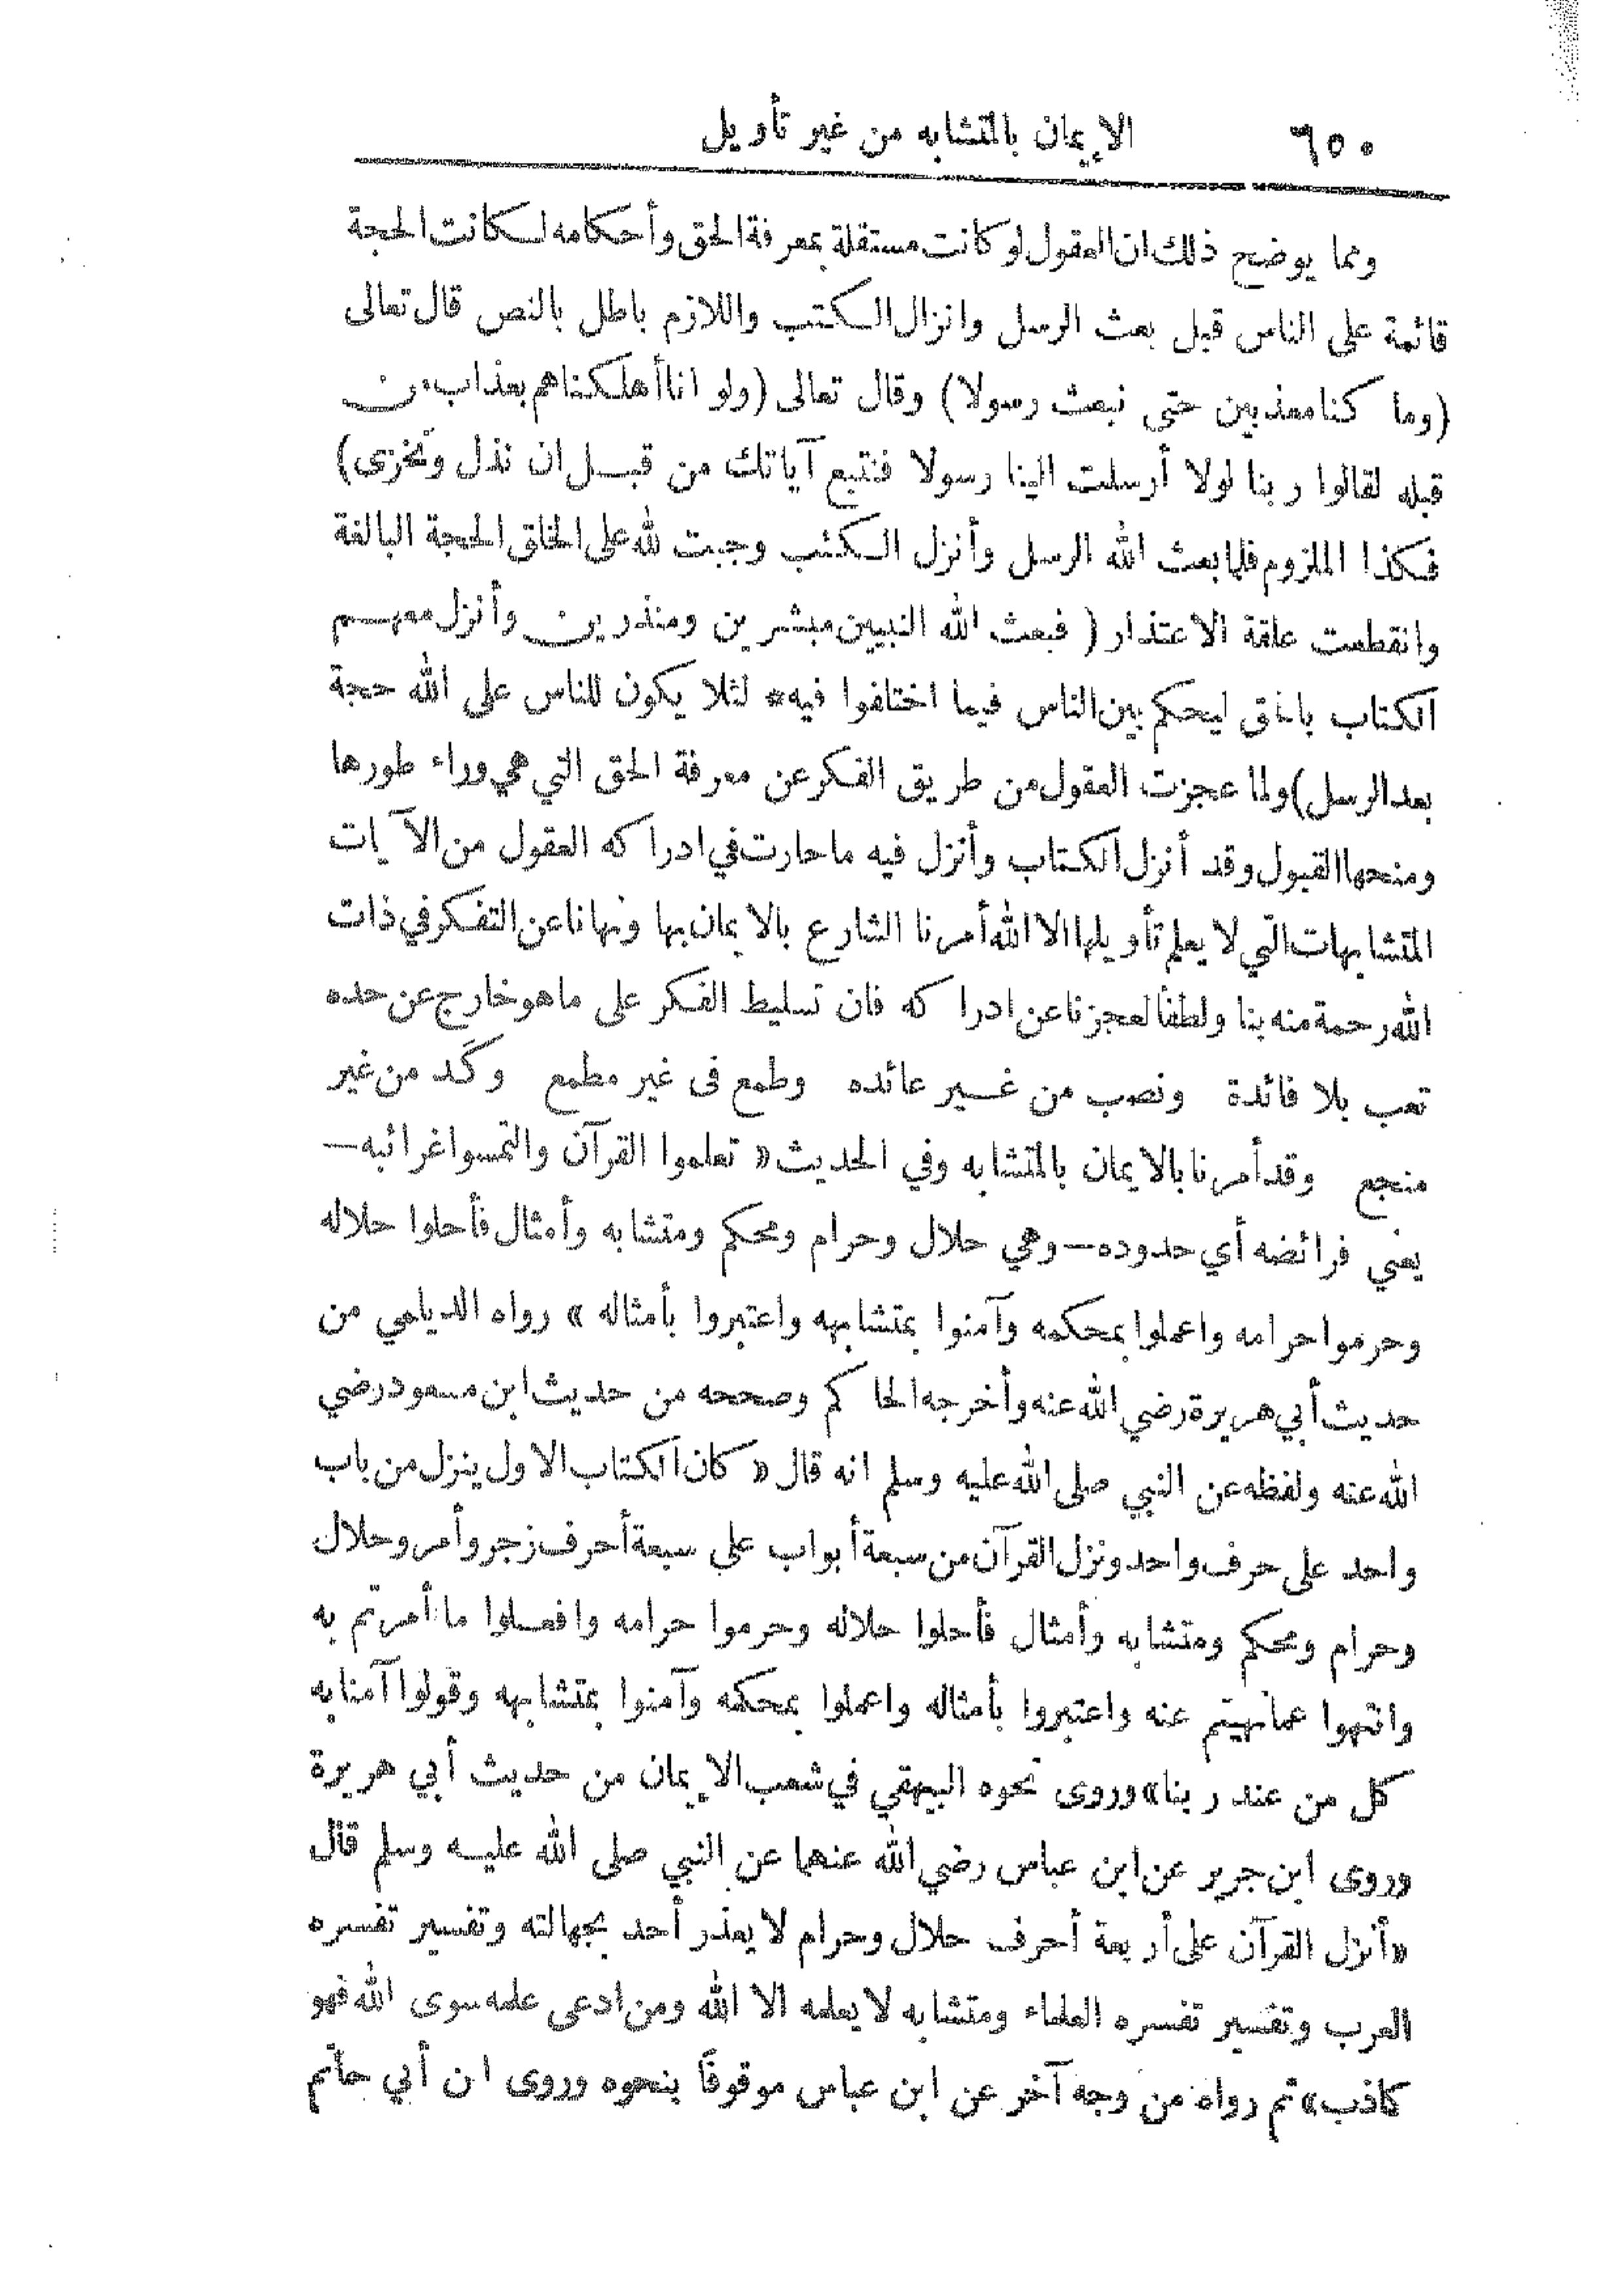 ٦٥٠ الإيمان بالمتشابه من غير تأويل
ومما يوضح ذلك ان العقول لو كانت مستقلة بمعرفة الحق وأحكامه لكانت الحجة
قائمة على الناس قبل بعث الرسل وانزال الكتب واللازم باطل بالنص قال تعالى
(وما كنا معذبين حتى نبعث رسولا) وقال تعالى (ولو انا أهلكناهم بعذاب من
قبله لقالوا ربنا لولا أرسلت الينا رسولا فنتبع آياتك من قبل ان نذل ونخزى)
فكذا الملزوم فلما بعث الله الرسل وأنزل الكتب وجبت لله على الخلق الحجة البالغة
وانقطعت علقة الاعتذار ( فبعث الله النبيين مبشرين ومنذرين وأنزل معهم
الكتاب بالحق ليحكم بين الناس فيما اختلفوا فيه * لئلا يكون للناس على الله حجة
بعد الرسل) ولما عجزت العقول من طريق الفكر عن معرفة الحق التي هي وراء طورها
ومنحها القبول وقد أنزل الكتاب وأنزل فيه ما حارت في ادراكه العقول من الآيات
المتشابهات التي لا يعلم تأويلها الا الله أمرنا الشارع بالايمان بها ونهانا عن التفكر في ذات
الله رحمة منه بنا ولطفاً لعجزنا عن ادراكه فان تسليط الفكر على ما هو خارج عن حده
تعب بلا فائدة ونصب من غير عائده وطمع فى غير مطمع وكَد من غير
منجع وقد أمرنا بالايمان بالمتشابه وفي الحديث « تعلموا القرآن والتمسوا غرائبه —
يعني فرائضه أي حدوده — وهي حلال وحرام ومحكم ومتشابه وأمثال فأحلوا حلاله
وحرموا حرامه واعملوا بمحكمه وآمنوا بمتشابهه واعتبروا بأمثاله » رواه الديلمي من
حديث أبي هريرة رضي الله عنه وأخرجه الحاكم وصححه من حديث ابن مسعود رضي
الله عنه ولفظه عن النبي صلى الله عليه وسلم انه قال « كان الكتاب الاول ينزل من باب
واحد على حرف واحد ونزل القرآن من سبعة أبواب على سبعة أحرف زجر وأمر وحلال
وحرام ومحكم ومتشابه وأمثال فأحلوا حلاله وحرموا حرامه وافعلوا ما أمرتم به
وانتهوا عما نهيتم عنه واعتبروا بأمثاله واعملوا بمحكمه وآمنوا بمتشابهه وقولوا آمنا به
كل من عند ربنا» وروى نحوه البيهقي في شعب الإيمان من حديث أبي هريرة
وروى ابن جرير عن ابن عباس رضي الله عنهما عن النبي صلى الله عليه وسلم قال
«أنزل القرآن على أربعة أحرف حلال وحرام لا يعذر أحد بجهالته وتفسير تفسره
العرب وتفسير تفسره العلماء ومتشابه لا يعلمه الا الله ومن ادعى علمه سوى الله فهو
كاذب» ثم رواه من وجه آخر عن ابن عباس موقوفاً بنحوه وروى ابن أبي حاتم